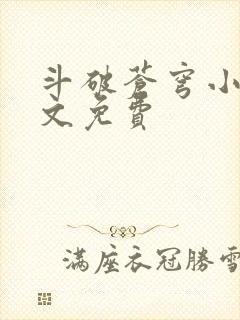 斗破苍穹小
文免費
满座衣冠勝雪